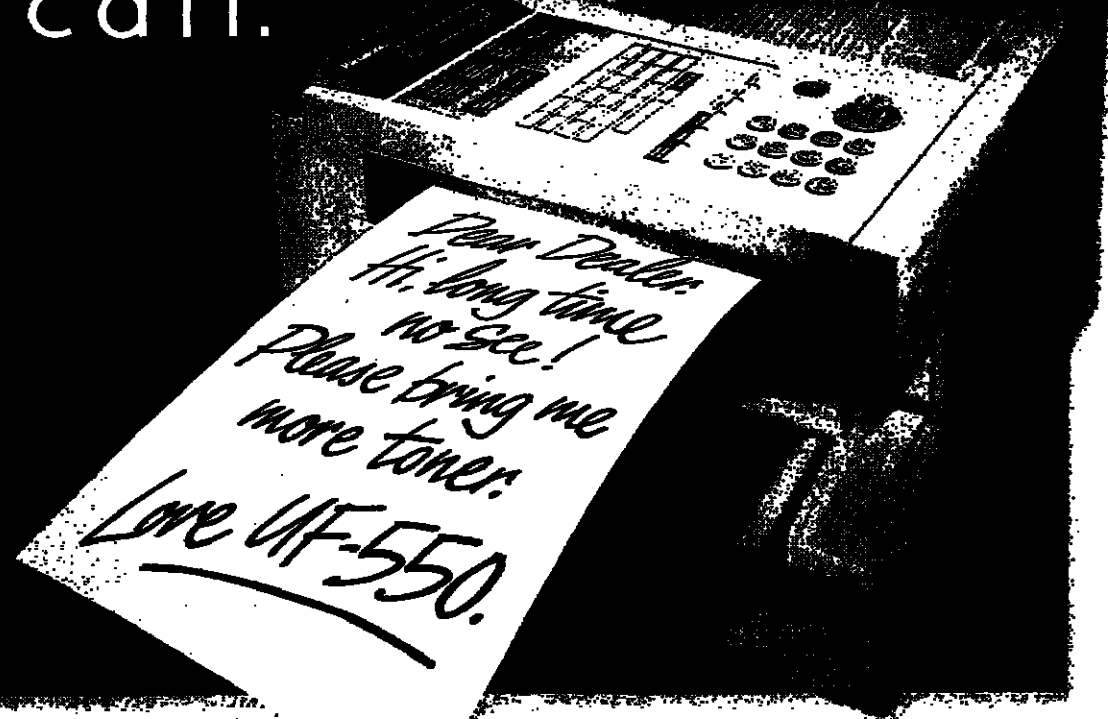 call.
Dear Dealer:
Hi, long time
no see!
Please bring me
more toner.
Love UF-550.